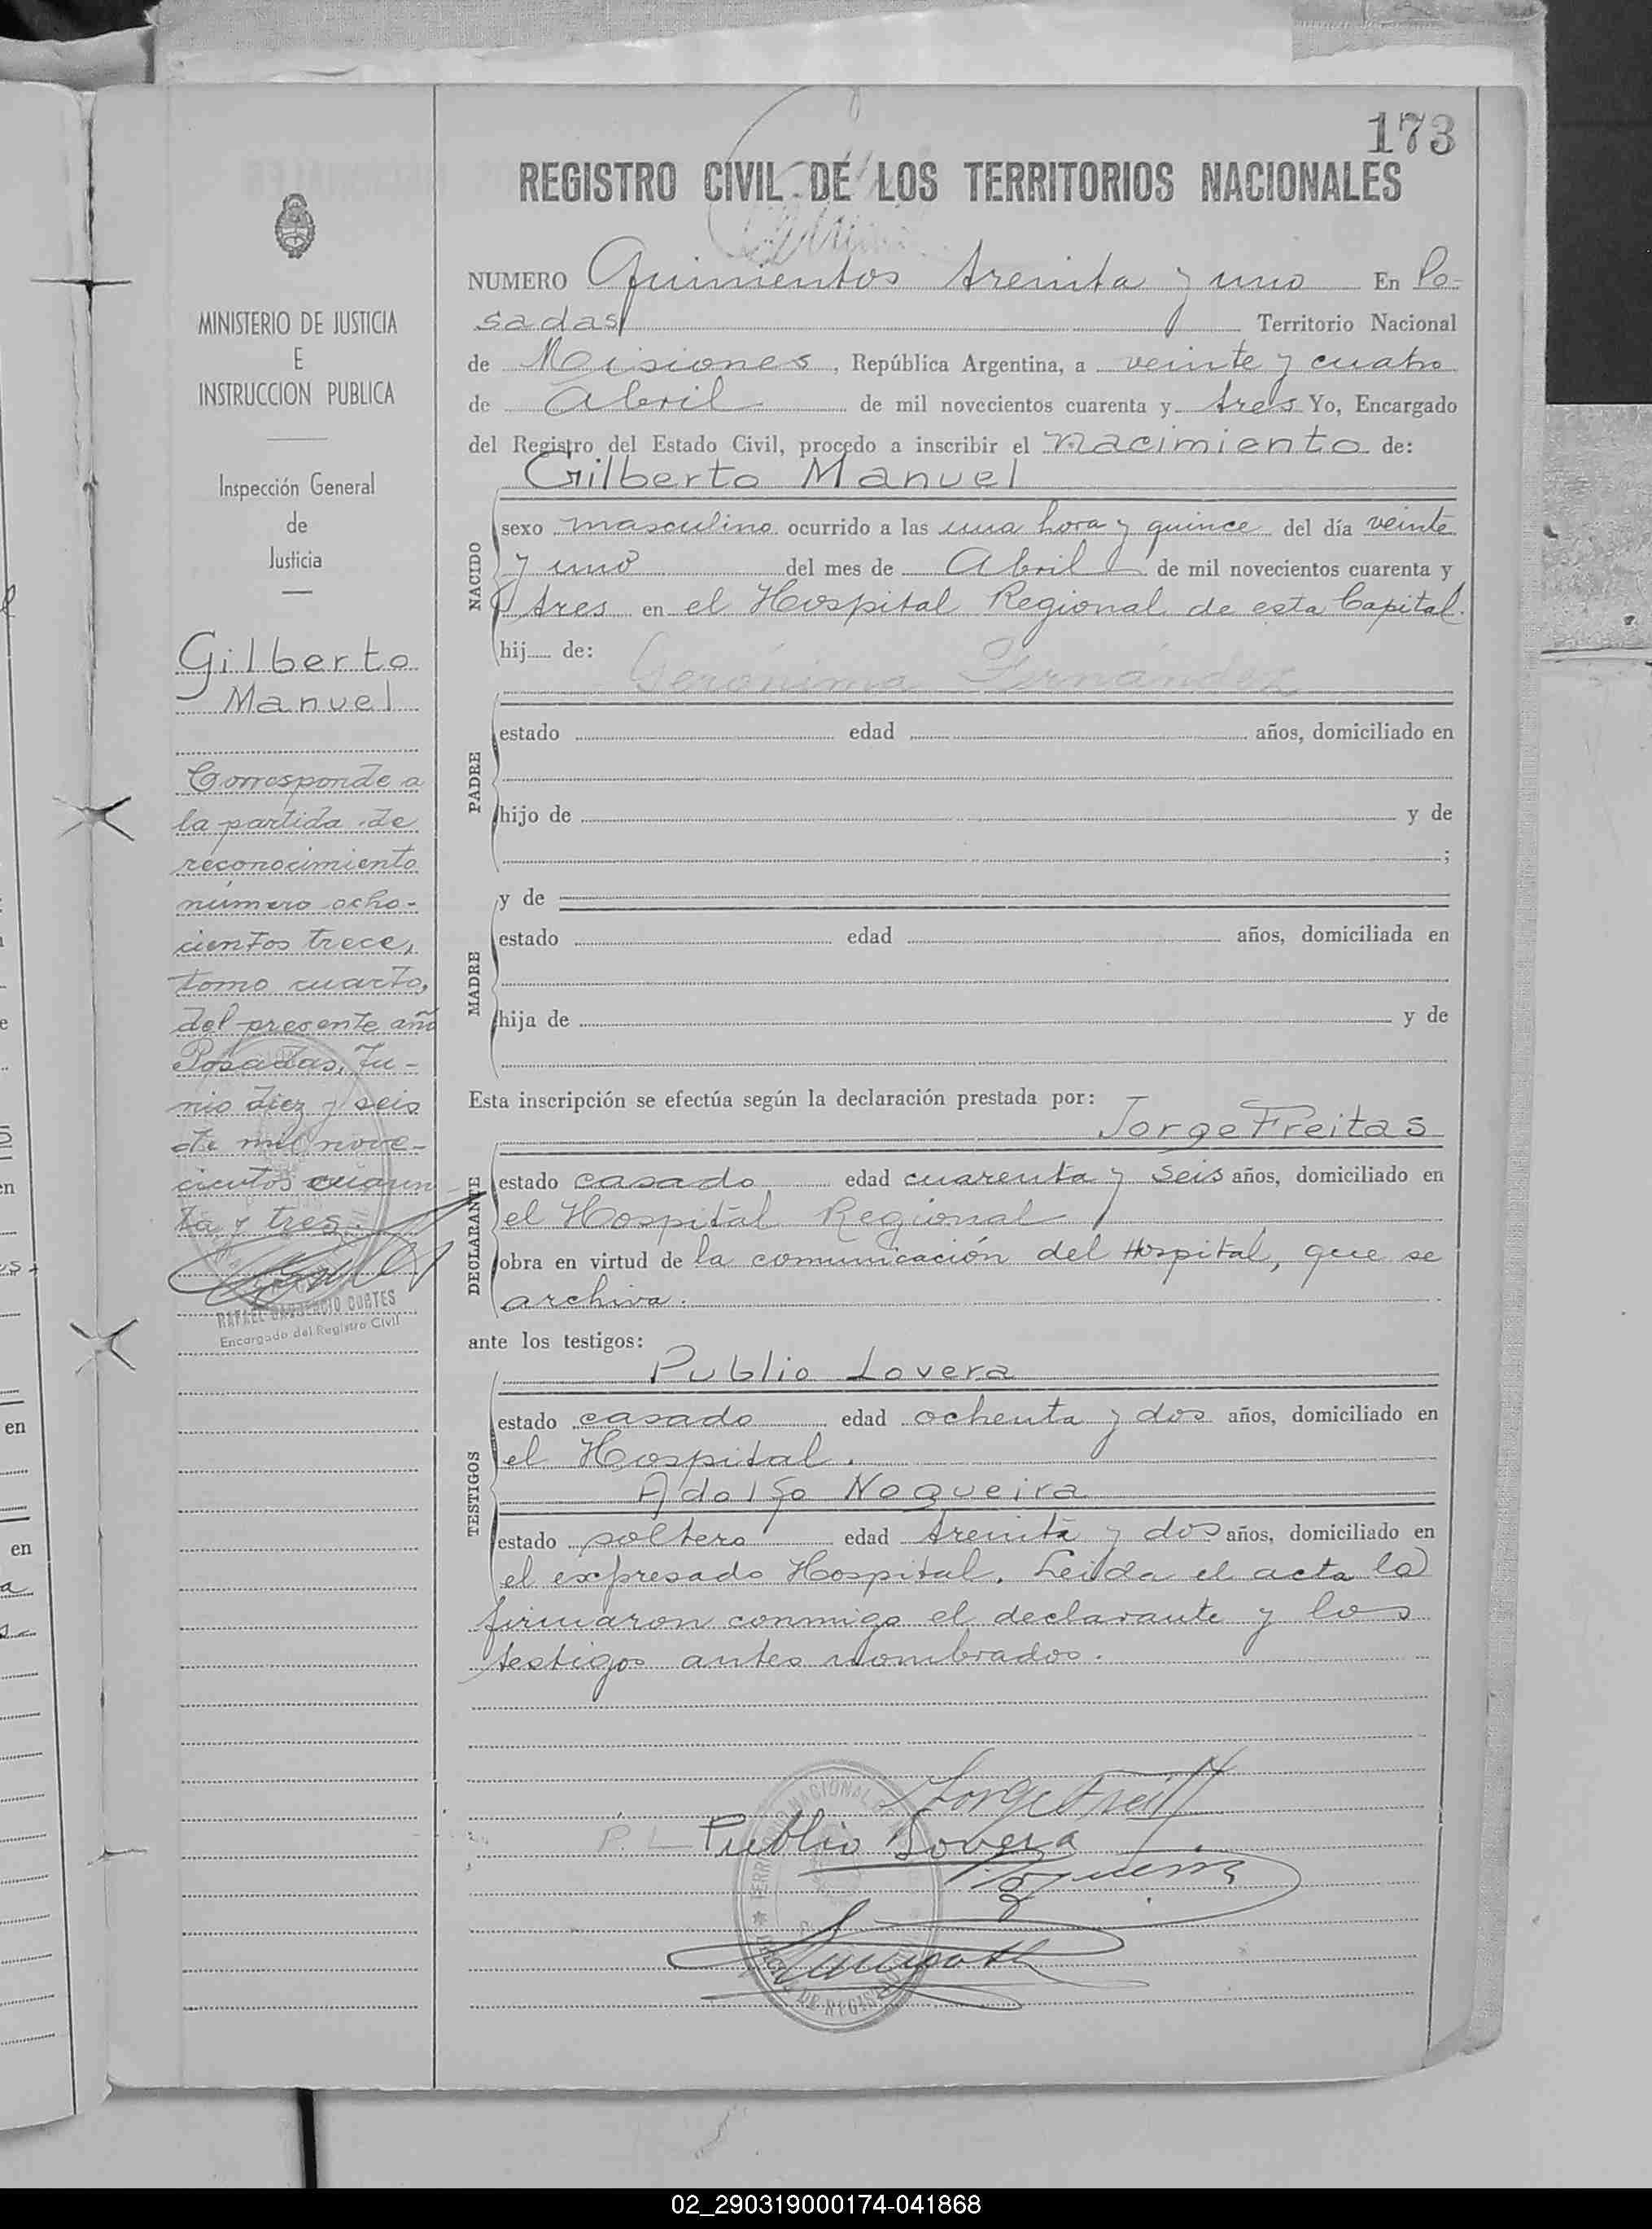 173
REGISTRO CIVIL DE LOS TERRITORIOS NACIONALES
MINISTERIO DE JUSTICIA
E
INSTRUCCION PUBLICA
Inspección General
de
Justicia
Gilberto
Manuel
Corresponde a
la partida de
reconocimiento
número ocho-
cientos trece,
tomo cuarto,
del presente año
Posadas, Ju-
nio diez y seis
de mil nove-
cientos cuaren
ta y tres.
CORTES
Encargado del Registro Civil
NUMERO Quinientos treinta y uno En Po-
sadas Territorio Nacional
de Misiones, República Argentina, a veinte y cuatro
de Abril de mil novecientos cuarenta y tres Yo, Encargado
del Registro del Estado Civil, procedo a inscribir el nacimiento de:
Gilberto Manuel
NACIDO
sexo masculino ocurrido a las una hora y quince del día veinte
y uno del mes de Abril de mil novecientos cuarenta y
tres en el Hospital Regional de esta Capital.
hij de:
Gerónima Fernández
PADRE
estado edad años, domiciliado en
hijo de y de
;
y de
MADRE
estado edad años, domiciliada en
hija de y de
Esta inscripción se efectúa según la declaración prestada por:
Jorge Freitas
DECLARANTE
estado casado edad cuarenta y seis años, domiciliado en
el Hospital Regional
obra en virtud de la comunicación del Hospital, que se
archiva.
ante los testigos:
Publio Lovera
TESTIGOS
estado casado edad ochenta y dos años, domiciliado en
el Hospital.
Adolfo Nogueira
estado soltero edad treinta y dos años, domiciliado en
el expresado Hospital. Leida el acta la
firmaron conmigo el declarante y los
testigos antes nombrados.
P. L Publio Lovera
02_290319000174-041868